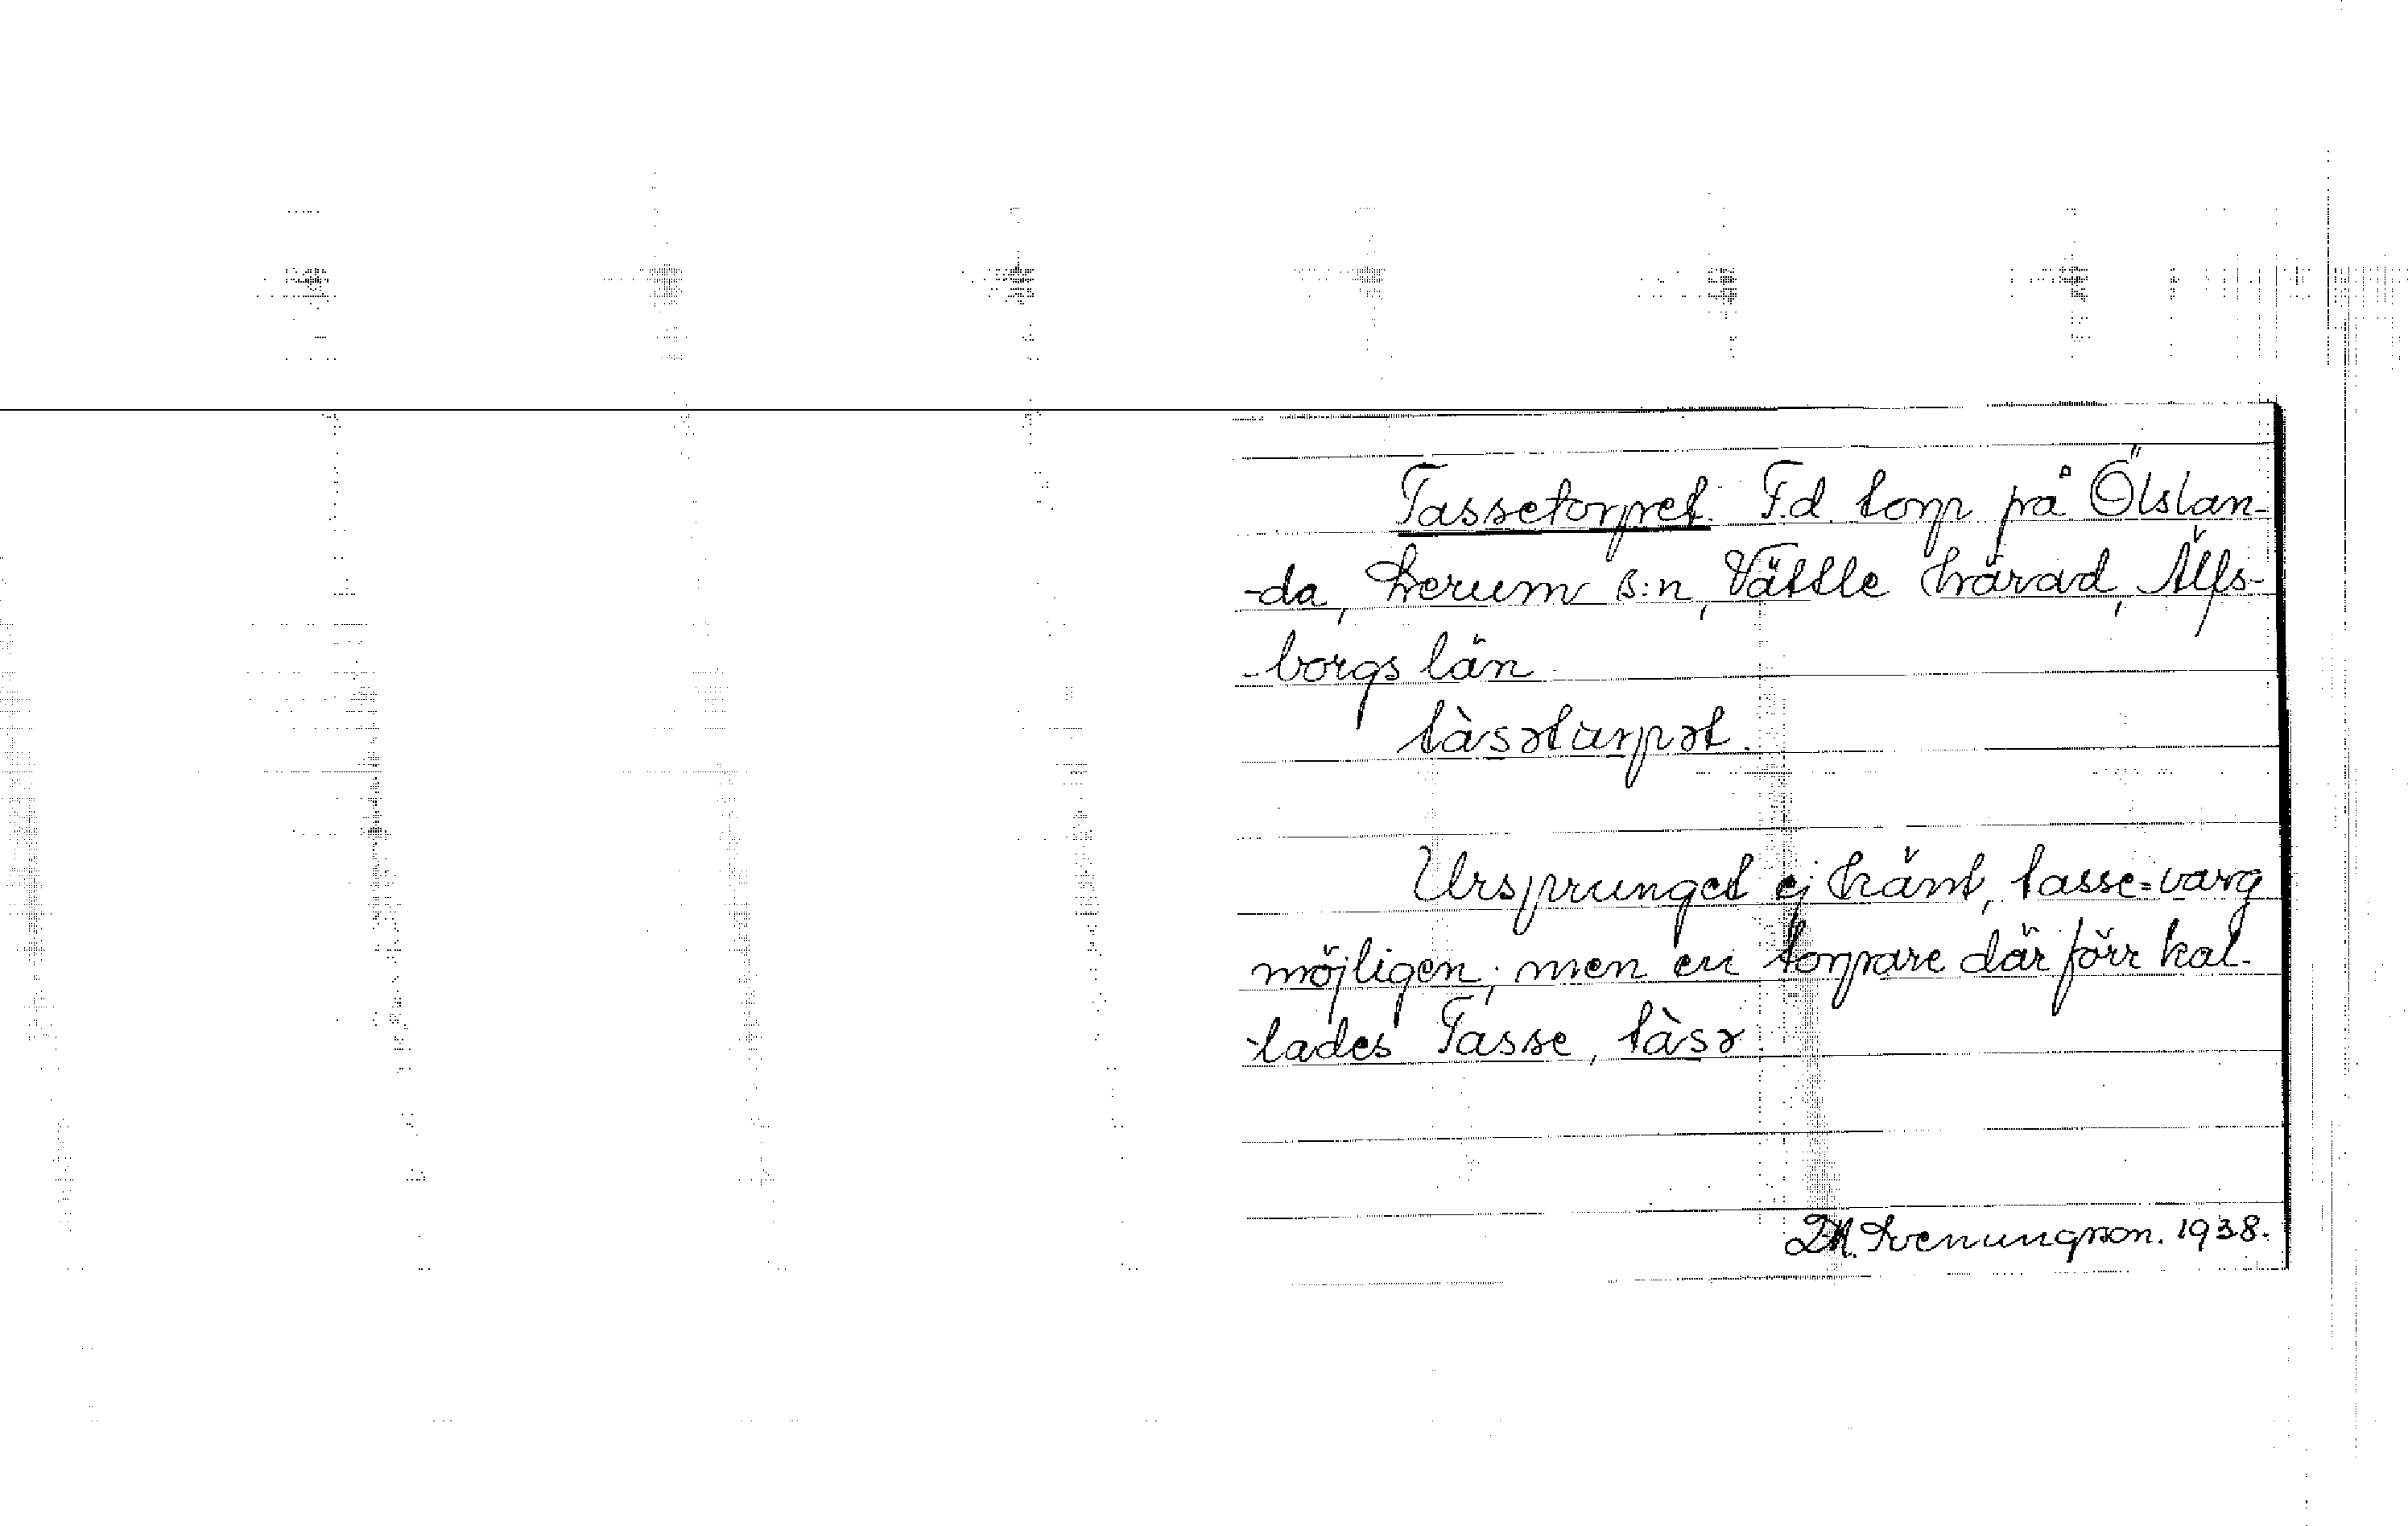 Tassetorpet. F.d. torp på Ölslan-
-da, Lerum s:n, Vättle härad, Älfs-
-borgs län
tàsətarpət.
Ursprunget ej känt, tasse=varg
möjligen; men en torpare där förr kal-
-lades Tasse, tàsə.
D.A. Svenungson. 1938.